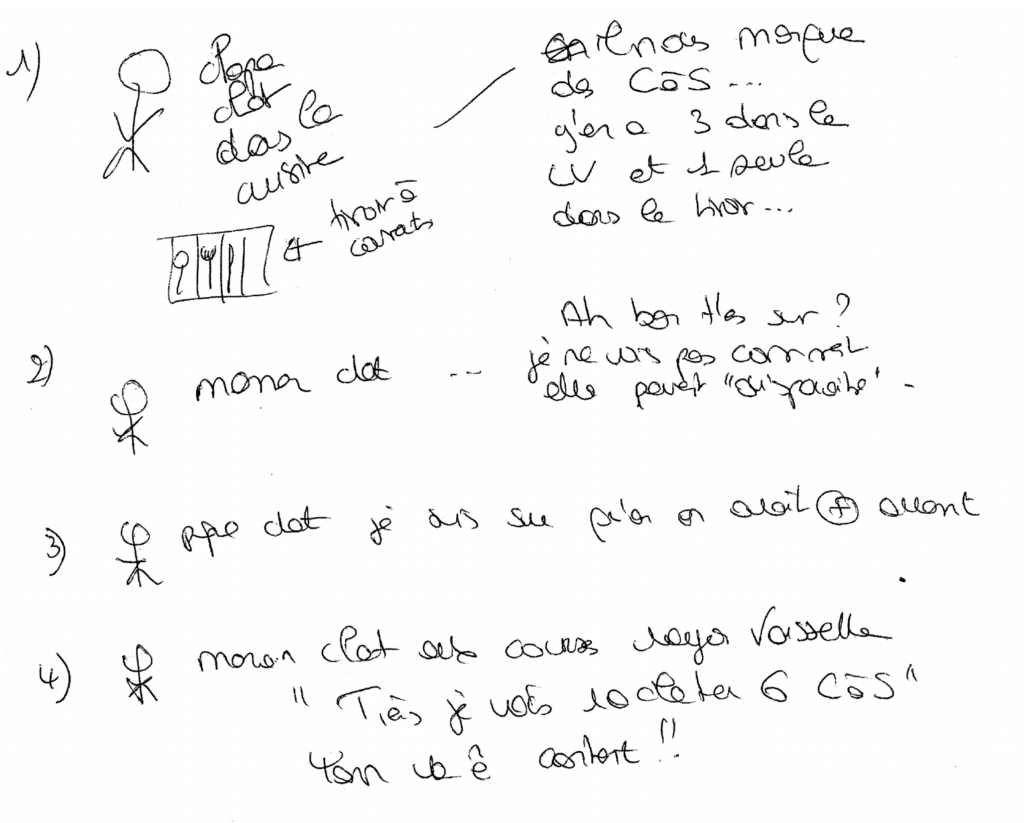 1)
Papa
chat
dans la
cuisine
il nous manque
des CàS ...
y'en a 3 dans le
LV et 1 seule
dans le tiroir ...
tiroir à
couverts
2) maman chat ...
Ah bon t'es sur ?
je ne vois pas comment
elles peuvent "disparaitre".
3) papa chat je suis sur qu'on en avait + avant
4) maman chat aux courses rayon Vaisselle
"Tiens je vais racheter 6 CàS"
Tom va ê content !!